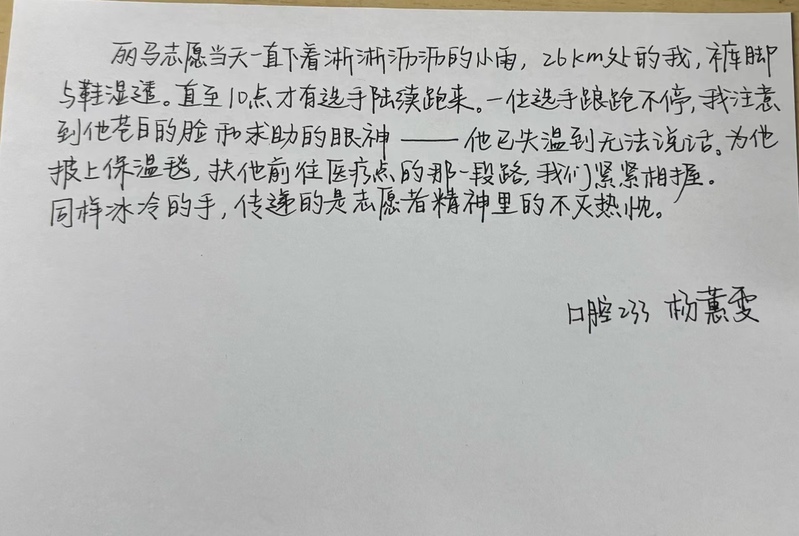 丽马志愿当天一直下着淅淅沥沥的小雨，26km处的我，裤脚
与鞋湿透。直至10点才有选手陆续跑来。一位选手踉跄不停，我注意
到他苍白的脸和求助的眼神——他已失温到无法说话。为他
披上保温毯，扶他前往医疗点的那一段路，我们紧紧相握。
同样冰冷的手，传递的是志愿者精神里的不灭热忱。
口腔233 杨蕙雯